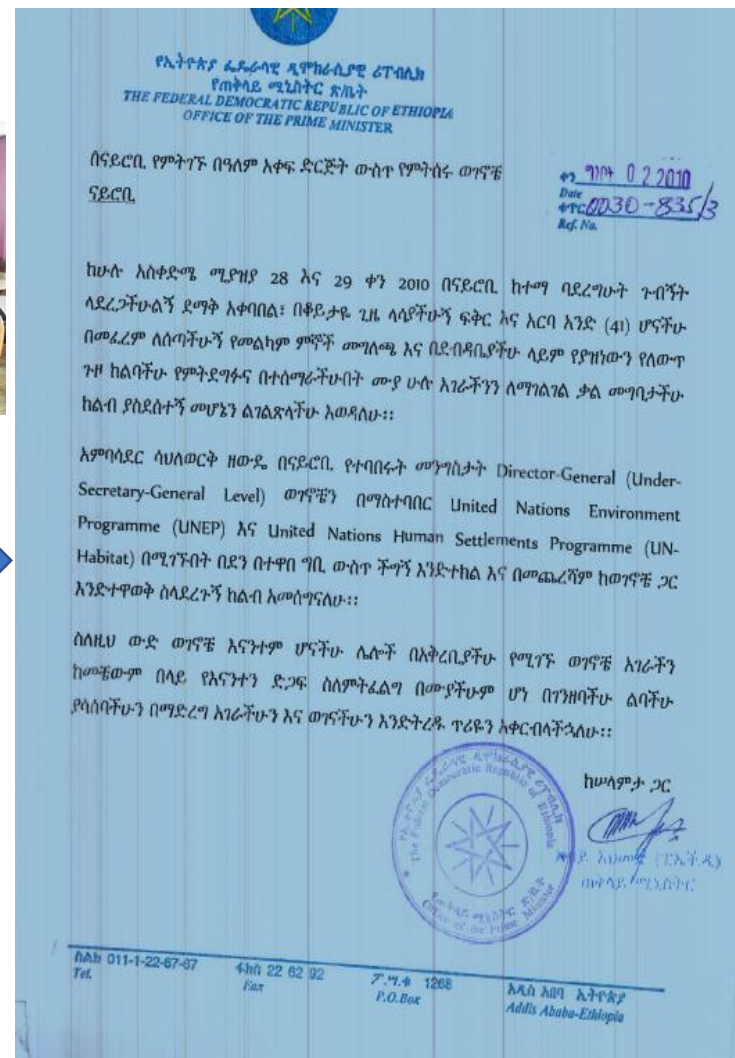 የኢትዮጵያ ፌዴራላዊ ዲሞክራሲያዊ ሪፐብሊክ
የጠቅላይ ሚኒስትር ጽ/ቤት
THE FEDERAL DEMOCRATIC REPUBLIC OF ETHIOPIA
OFFICE OF THE PRIME MINISTER
በናይሮቢ የምትገኙ በዓለም አቀፍ ድርጅት ውስጥ የምትሰሩ ወገኖቼ
ናይሮቢ
ቀን ግንቦት 02 2010
Date
ቁጥር 0030-835/3
Ref. No.
ከሁሉ አስቀድሜ ሚያዝያ 28 እና 29 ቀን 2010 በናይሮቢ ከተማ ባደረግሁት ጉብኝት
ላደረጋችሁልኝ ደማቅ አቀባበል፣ በቆይታዬ ጊዜ ላሳያችሁኝ ፍቅር እና አርባ አንድ (41) ሆናችሁ
በመፈረም ለሰጣችሁኝ የመልካም ምኞች መግለጫ እና በደብዳቤያችሁ ላይም የያዝነውን የለውጥ
ጉዞ ከልባችሁ የምትደግፉና በተሰማራችሁበት ሙያ ሁሉ አገራችንን ለማገልገል ቃል መግባታችሁ
ከልብ ያስደሰተኝ መሆኔን ልገልጽላችሁ እወዳለሁ።
አምባሳደር ሳህለወርቅ ዘውዴ በናይሮቢ የተባበሩት መንግስታት Director-General (Under-
Secretary-General Level) ወገኖቼን በማስተባበር United Nations Environment
Programme (UNEP) እና United Nations Human Settlements Programme (UN-
Habitat) በሚገኙበት በደን በተዋበ ግቢ ውስጥ ችግኝ እንድተክል እና በመጨረሻም ከወገኖቼ ጋር
እንድተዋወቅ ስላደረጉኝ ከልብ አመሰግናለሁ።
ስለዚህ ውድ ወገኖቼ እናንተም ሆናችሁ ሌሎች በአቅራቢያችሁ የሚገኙ ወገኖቼ አገራችን
ከመቼውም በላይ የእናንተን ድጋፍ ስለምትፈልግ በሙያችሁም ሆነ በገንዘባችሁ ልባችሁ
ያሳሰባችሁን በማድረግ አገራችሁን እና ወገናችሁን እንድትረዱ ጥሪዬን አቀርብላችኋለሁ።
ከሠላምታ ጋር
አህመድ (ፒኤች.ዲ)
ጠቅላይ ሚኒስትር
የኢትዮጵያ ፌዴራላዊ ዲሞክራሲያዊ ሪፐብሊክ
The Federal Democratic Republic of Ethiopia
የጠቅላይ ሚኒስትር ጽ/ቤት
Office of the Prime Minister
ስልክ 011-1-22-67-67
Tel.
ፋክስ 22 62 92
Fax
ፖ.ሣ.ቁ 1268
P.O.Box
አዲስ አበባ ኢትዮጵያ
Addis Ababa-Ethiopia